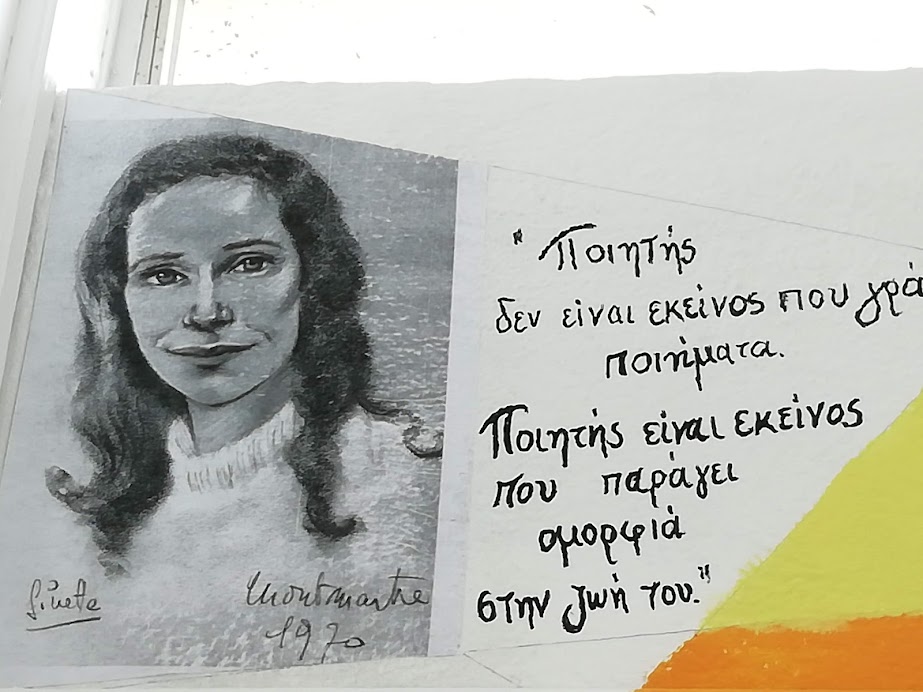 "Ποιητής
δεν είναι εκείνος που γρά
ποιήματα.
Ποιητής είναι εκείνος
που παράγει
ομορφιά
στην ζωή του."
Montmartre
1970